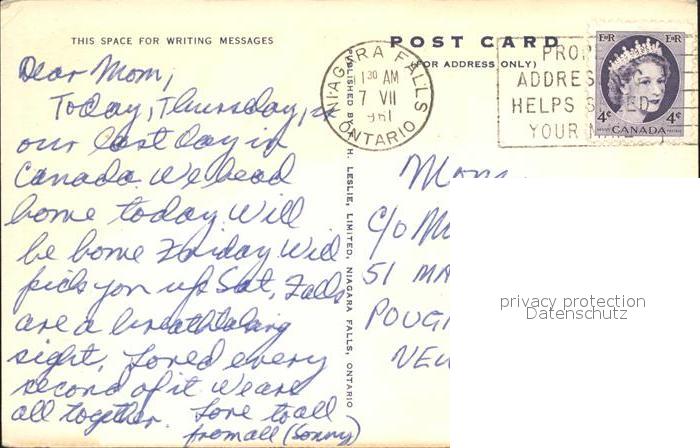 THIS SPACE FOR WRITING MESSAGES
Dear Mom,
Today, Thursday, is
our last day in
Canada. We head
home today. Will
be home Friday. Will
pick you up Sat. Falls
are a breathtaking
sight. Loved every
second of it. We are
all together. Love to all
from all (Sonny)
PUBLISHED BY H. LESLIE, LIMITED, NIAGARA FALLS, ONTARIO
POST CARD
(FOR ADDRESS ONLY)
NIAGARA FALLS
1 30 AM
7 VII
961
ONTARIO
PROP
ADDRES
HELPS S ED
YOUR M
E II R E II R
4¢ 4¢
CANADA
Mom
C/O M
51 MA
POUG
NEW
privacy protection
Datenschutz